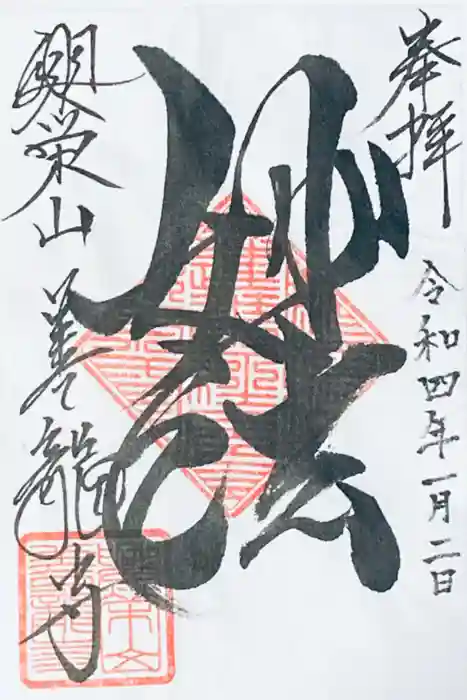 奉拝
令和四年一月二日
妙法
顕栄山
善龍寺